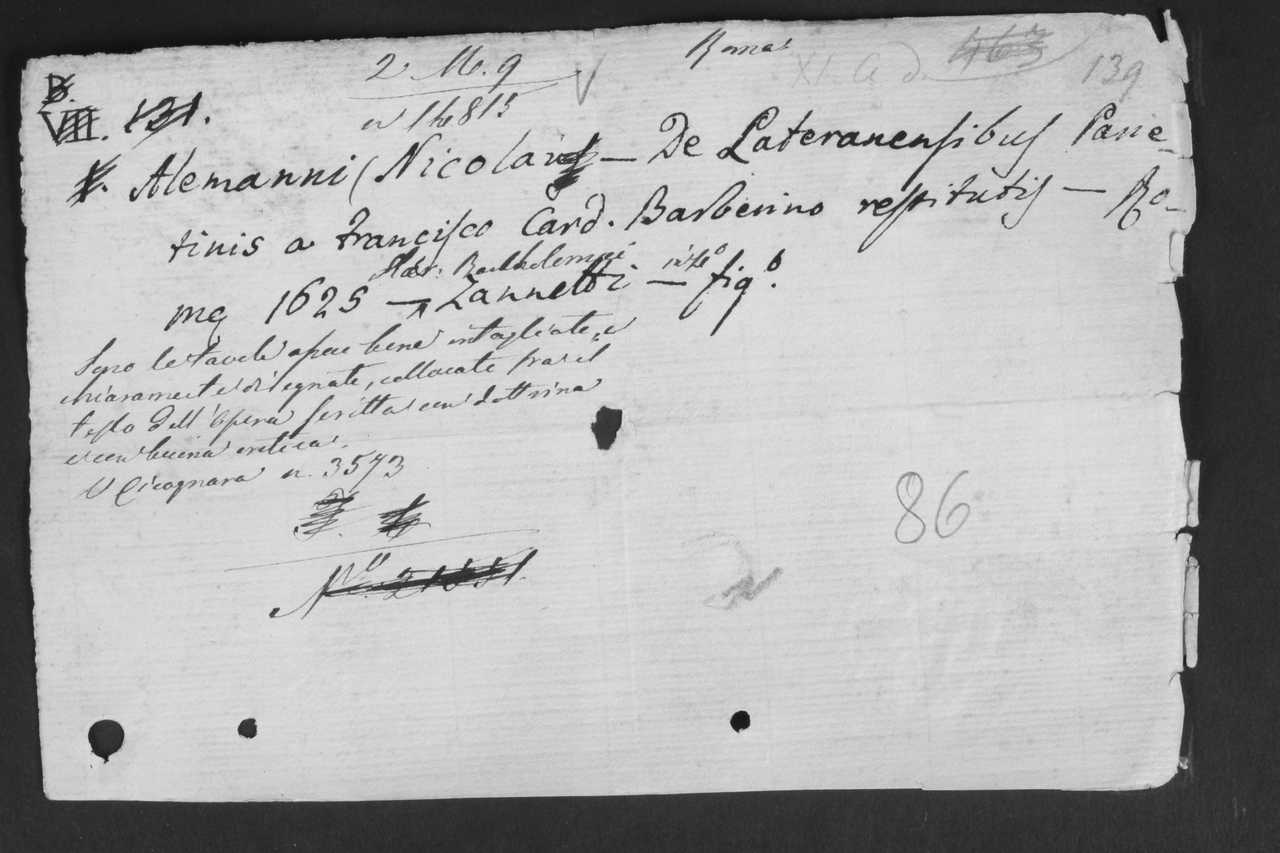 2. M. 9
Roma
XI. G d. 463
139
B.
VIII. 131.
n 14815
Alemanni (Nicolai — De Lateranensibus Parie-
tinis a Francisco Card. Barberino restitutis — Ro-
mę 1625 — Zannetti — fig.º
Hær. Barthelemæi
in 4º
Sono le tavole assai bene intagliate, e
chiaramente disegnate, collocate fra il
testo dell'opera scritta con dottrina
e con buona critica.
V Cicognara n. 3573
Nº 21551.
86